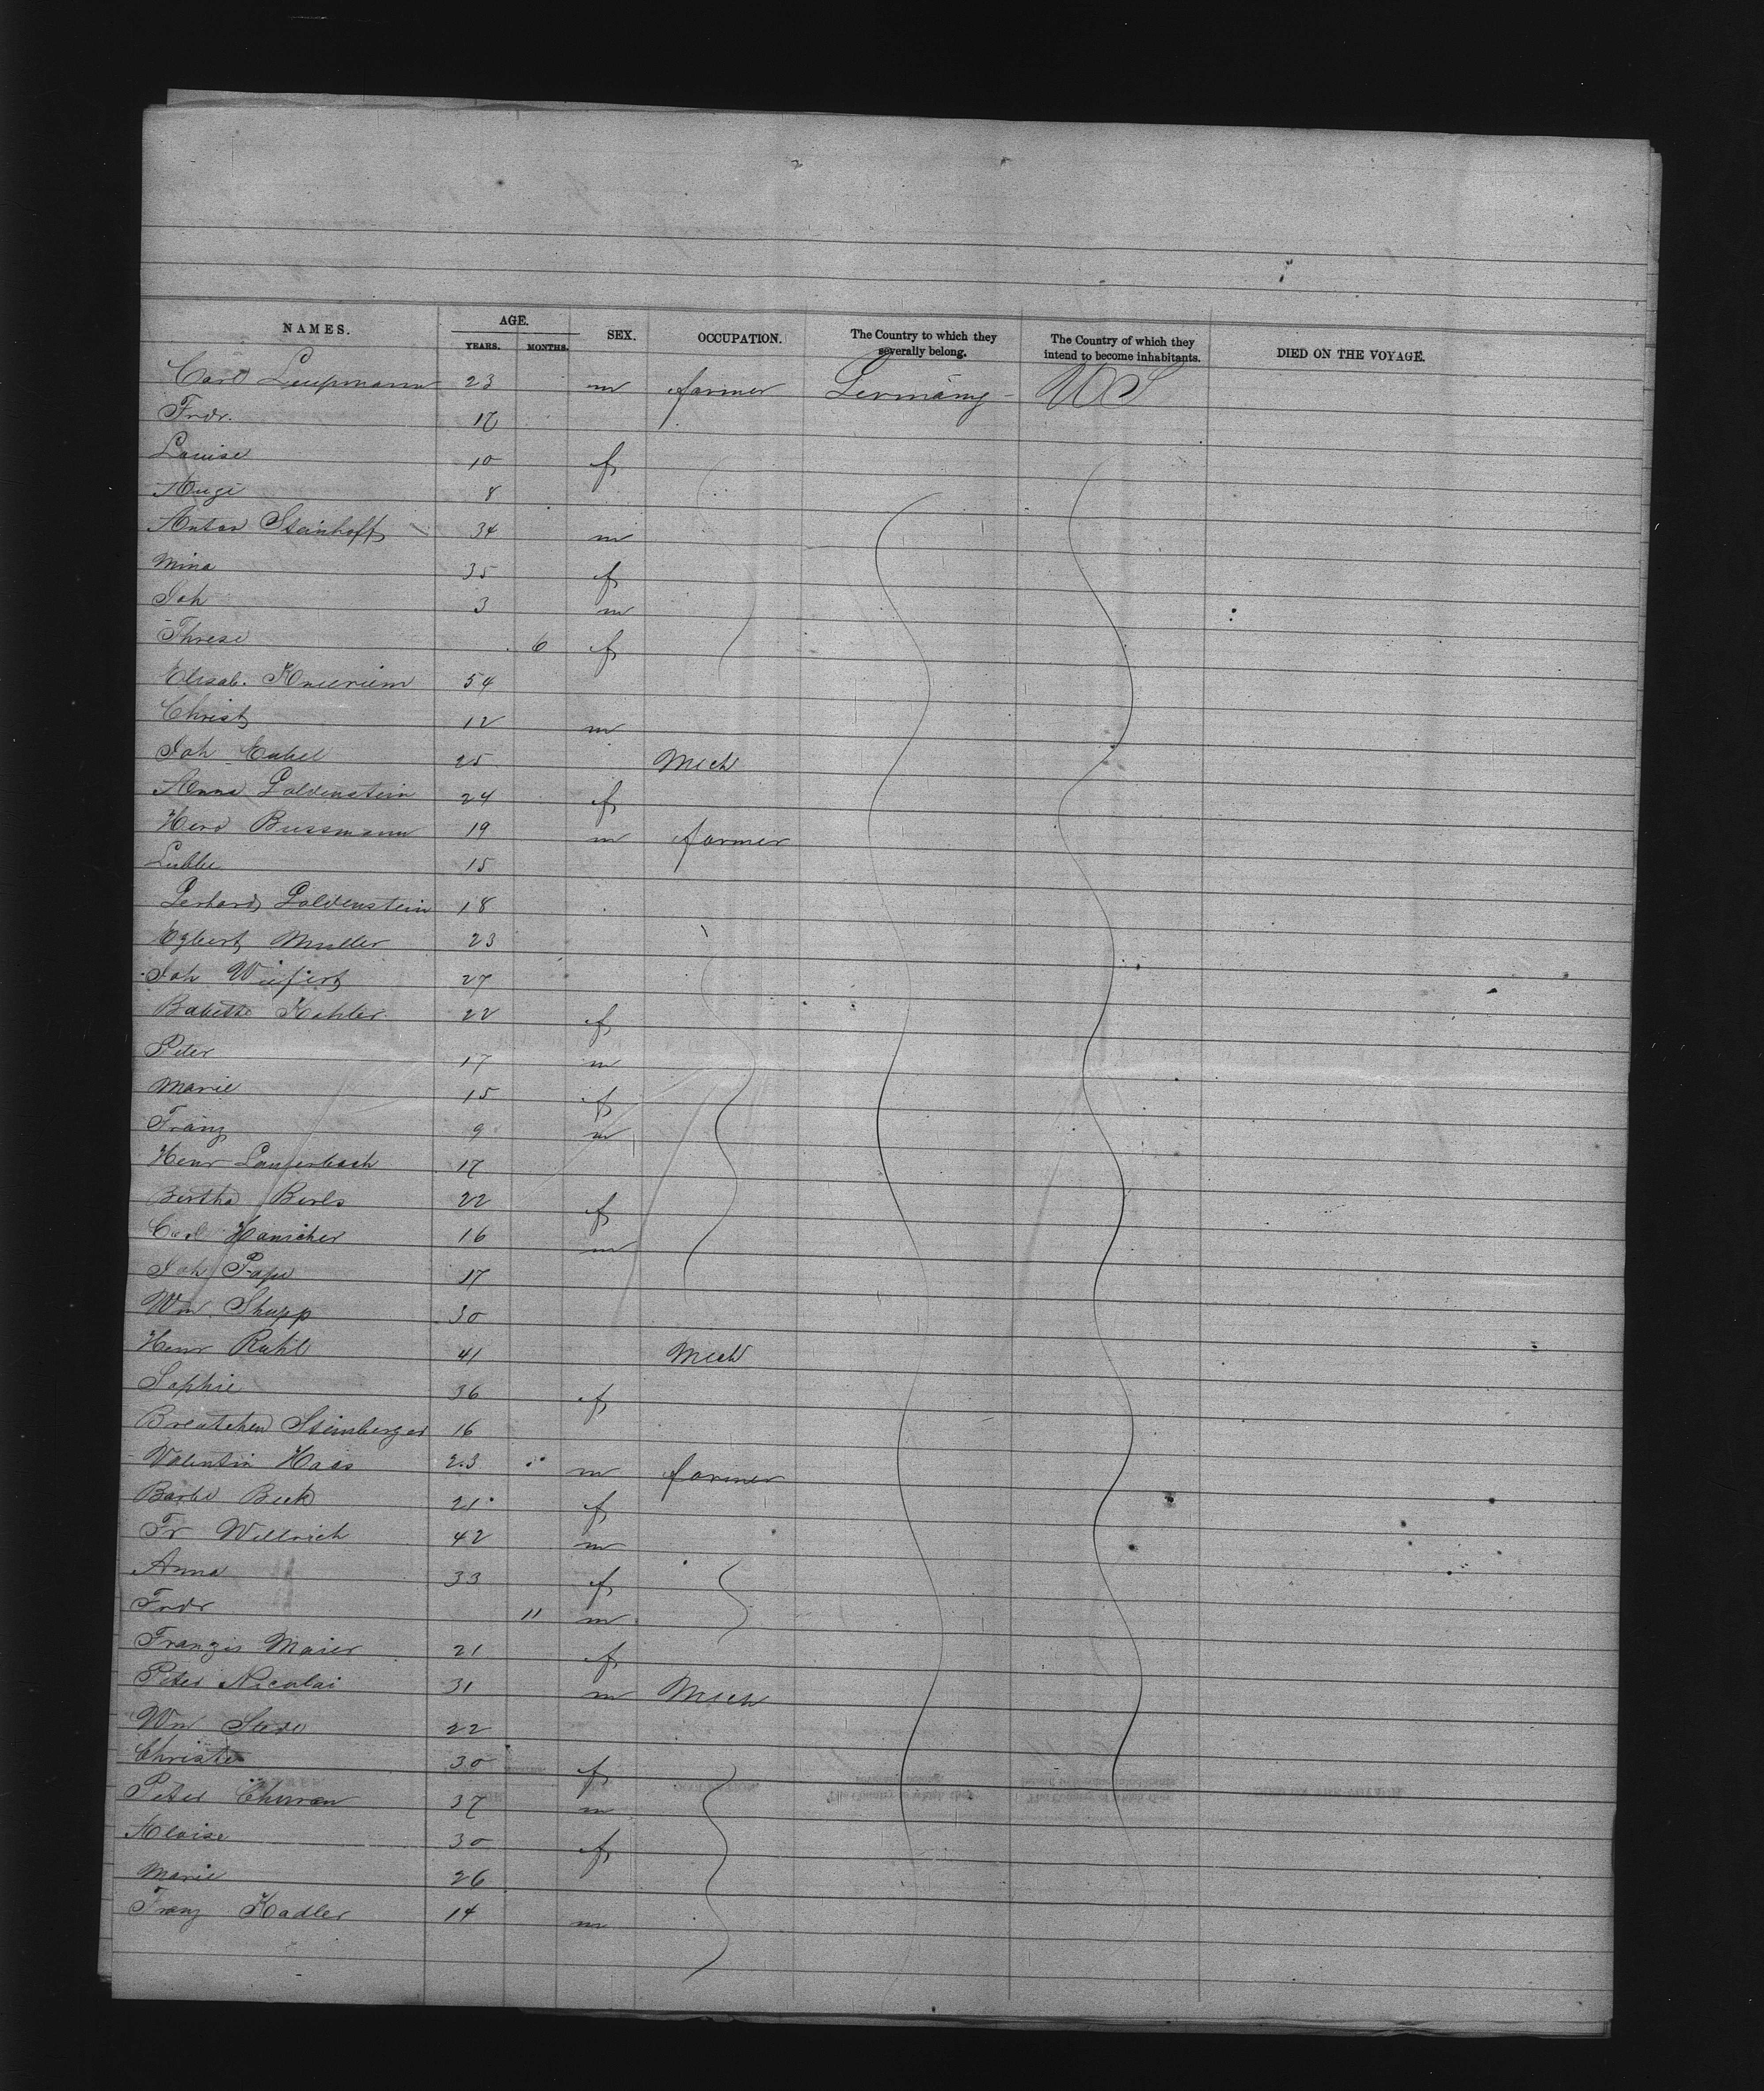 NAMES. AGE. YEARS. MONTHS. SEX. OCCUPATION. The Country to which they severally belong. The Country of which they intend to become inhabitants. DIED ON THE VOYAGE.
Carl 23 m farmer Germany US
Fridr. 17
Louise 10 f
8
Anton Steinhoff 34 m
Mina 35 f
Joh 3 m
Threse 6 f
Elisab. Knieriem 54
Christ 12 m
Joh 25 Mech
Anna Goldenstein 24 f
Herd Bussmann 19 m farmer
Lubbe 15
Gerhard Goldenstein 18
Egbert Muller 23
Joh 27
Babette Kohler 22 f
Peter 17 m
Marie 15 f
Franz 9 m
Henr Lauferbach 17
Bertha Berls 22 f
Carl Hanicher 16 m
Joh Pape 17
Wm Shupp 30
Henr Ruhl 41 Mech
Sophie 36 f
Steinberger 16
Valentin Haas 23 m farmer
Barbe Beck 21 f
Fr Willrich 42 m
Anna 33 f
Fridr 11 m
Franzis Maier 21 f
Peter Nicolai 31 m Mech
Wm 22
Christe 30 f
Peter 37 m
Aloise 30 f
Marie 26
Franz Kadler 14 m